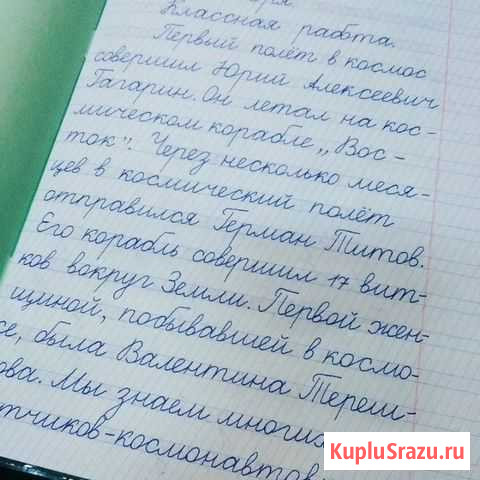 Классная работа.
Первый полёт в космос
совершил Юрий Алексеевич
Гагарин. Он летал на кос-
мическом корабле „Вос-
ток". Через несколько меся-
цев в космический полёт
отправился Герман Титов.
Его корабль совершил 17 вит-
ков вокруг Земли. Первой жен-
щиной, побывавшей в космо-
се, была Валентина Тереш-
ова. Мы знаем многих
тчиков-космонавтов
KupluSrazu.ru